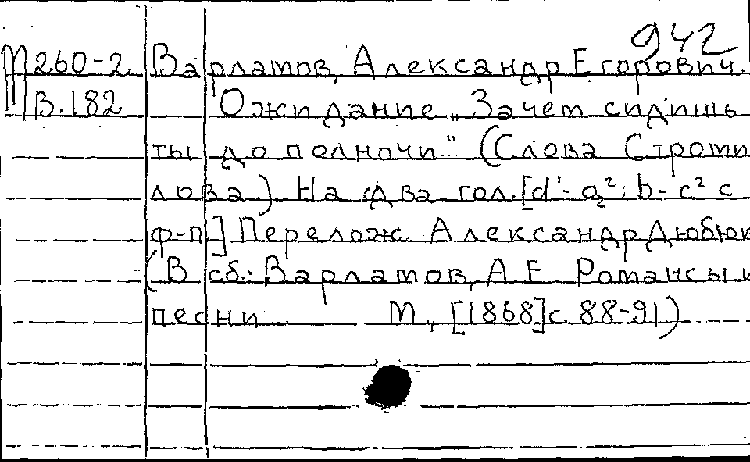 942
М260-2 Варламов, Александр Егорович.
В.182 Ожидание „Зачем сидишь
ты до полночи" (Слова Строми
лова) На два гол. [d'-a²; b-c² с
ф-п] Перелож. Александр Дюбюк
(В сб.: Варламов, А.Е. Романсы и
песни М., [1868] с 88-91)